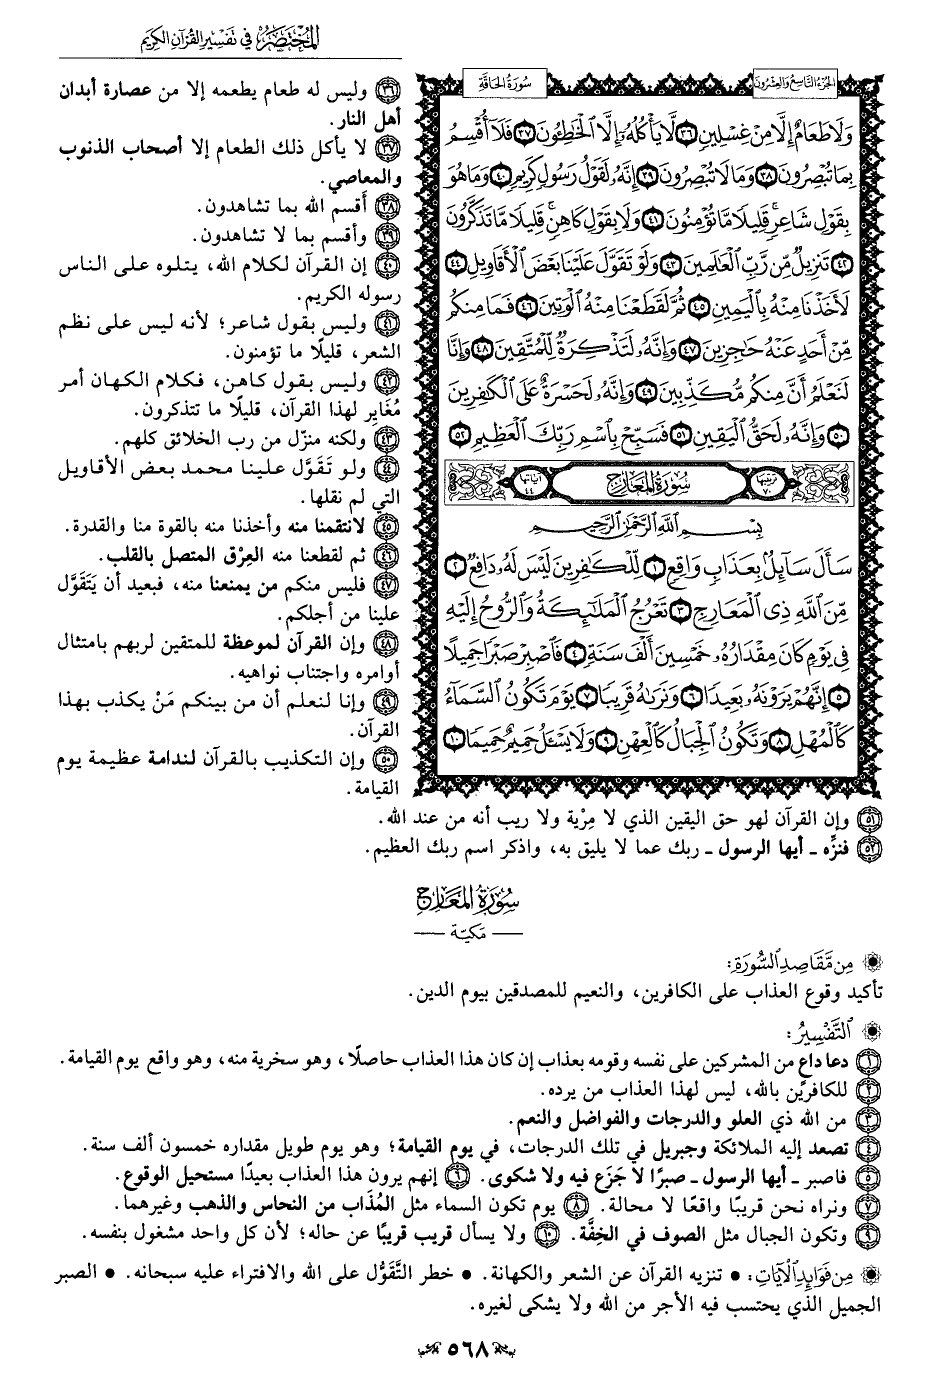 المختصر في تفسير القرآن الكريم
الجزء التاسع والعشرون
سورة الحاقة
وَلَا طَعَامٌ إِلَّا مِنْ غِسْلِينٍ ٣٦ لَّا يَأْكُلُهُۥٓ إِلَّا ٱلْخَٰطِـُٔونَ ٣٧ فَلَآ أُقْسِمُ
بِمَا تُبْصِرُونَ ٣٨ وَمَا لَا تُبْصِرُونَ ٣٩ إِنَّهُۥ لَقَوْلُ رَسُولٍ كَرِيمٍ ٤٠ وَمَا هُوَ
بِقَوْلِ شَاعِرٍ ۚ قَلِيلًا مَّا تُؤْمِنُونَ ٤١ وَلَا بِقَوْلِ كَاهِنٍ ۚ قَلِيلًا مَّا تَذَكَّرُونَ
٤٢ تَنزِيلٌ مِّن رَّبِّ ٱلْعَٰلَمِينَ ٤٣ وَلَوْ تَقَوَّلَ عَلَيْنَا بَعْضَ ٱلْأَقَاوِيلِ ٤٤
لَأَخَذْنَا مِنْهُ بِٱلْيَمِينِ ٤٥ ثُمَّ لَقَطَعْنَا مِنْهُ ٱلْوَتِينَ ٤٦ فَمَا مِنكُم
مِّنْ أَحَدٍ عَنْهُ حَٰجِزِينَ ٤٧ وَإِنَّهُۥ لَتَذْكِرَةٌ لِّلْمُتَّقِينَ ٤٨ وَإِنَّا
لَنَعْلَمُ أَنَّ مِنكُم مُّكَذِّبِينَ ٤٩ وَإِنَّهُۥ لَحَسْرَةٌ عَلَى ٱلْكَٰفِرِينَ
٥٠ وَإِنَّهُۥ لَحَقُّ ٱلْيَقِينِ ٥١ فَسَبِّحْ بِٱسْمِ رَبِّكَ ٱلْعَظِيمِ ٥٢
ترتيبها ٧٠ سورة المعارج آياتها ٤٤
بِسْمِ ٱللَّهِ ٱلرَّحْمَٰنِ ٱلرَّحِيمِ
سَأَلَ سَآئِلٌۢ بِعَذَابٍ وَاقِعٍ ١ لِّلْكَٰفِرِينَ لَيْسَ لَهُۥ دَافِعٌ ٢
مِّنَ ٱللَّهِ ذِى ٱلْمَعَارِجِ ٣ تَعْرُجُ ٱلْمَلَٰٓئِكَةُ وَٱلرُّوحُ إِلَيْهِ
فِى يَوْمٍ كَانَ مِقْدَارُهُۥ خَمْسِينَ أَلْفَ سَنَةٍ ٤ فَٱصْبِرْ صَبْرًا جَمِيلًا
٥ إِنَّهُمْ يَرَوْنَهُۥ بَعِيدًا ٦ وَنَرَىٰهُ قَرِيبًا ٧ يَوْمَ تَكُونُ ٱلسَّمَآءُ
كَٱلْمُهْلِ ٨ وَتَكُونُ ٱلْجِبَالُ كَٱلْعِهْنِ ٩ وَلَا يَسْـَٔلُ حَمِيمٌ حَمِيمًا ١٠
٣٦ وليس له طعام يطعمه إلا من عصارة أبدان
أهل النار.
٣٧ لا يأكل ذلك الطعام إلا أصحاب الذنوب
والمعاصي.
٣٨ أقسم الله بما تشاهدون.
٣٩ وأقسم بما لا تشاهدون.
٤٠ إن القرآن لكلام الله، يتلوه على الناس
رسوله الكريم.
٤١ وليس بقول شاعر؛ لأنه ليس على نظم
الشعر، قليلًا ما تؤمنون.
٤٢ وليس بقول كاهن، فكلام الكهان أمر
مُغَايِر لهذا القرآن، قليلًا ما تتذكرون.
٤٣ ولكنه منزّل من رب الخلائق كلهم.
٤٤ ولو تَقَوَّل علينا محمد بعض الأقاويل
التي لم نقلها.
٤٥ لانتقمنا منه وأخذنا منه بالقوة منا والقدرة.
٤٦ ثم لقطعنا منه العِرْق المتصل بالقلب.
٤٧ فليس منكم من يمنعنا منه، فبعيد أن يَتَقَوَّل
علينا من أجلكم.
٤٨ وإن القرآن لموعظة للمتقين لربهم بامتثال
أوامره واجتناب نواهيه.
٤٩ وإنا لنعلم أن من بينكم مَنْ يكذب بهذا
القرآن.
٥٠ وإن التكذيب بالقرآن لندامة عظيمة يوم
القيامة.
٥١ وإن القرآن لهو حق اليقين الذي لا مِرْية ولا ريب أنه من عند الله.
٥٢ فنزِّه ـ أيها الرسول ـ ربك عما لا يليق به، واذكر اسم ربك العظيم.
سورة المعارج
— مكيّة —
من مقاصد السورة:
تأكيد وقوع العذاب على الكافرين، والنعيم للمصدقين بيوم الدين.
التفسير:
١ دعا داعٍ من المشركين على نفسه وقومه بعذاب إن كان هذا العذاب حاصلًا، وهو سخرية منه، وهو واقع يوم القيامة.
٢ للكافرين بالله، ليس لهذا العذاب من يرده.
٣ من الله ذي العلو والدرجات والفواضل والنعم.
٤ تصعد إليه الملائكة وجبريل في تلك الدرجات، في يوم القيامة؛ وهو يوم طويل مقداره خمسون ألف سنة.
٥ فاصبر ـ أيها الرسول ـ صبرًا لا جَزَع فيه ولا شكوى. ٦ إنهم يرون هذا العذاب بعيدًا مستحيل الوقوع.
٧ ونراه نحن قريبًا واقعًا لا محالة. ٨ يوم تكون السماء مثل المُذَاب من النحاس والذهب وغيرهما.
٩ وتكون الجبال مثل الصوف في الخِفَّة. ١٠ ولا يسأل قريب قريبًا عن حاله؛ لأن كل واحد مشغول بنفسه.
من فوائد الآيات: • تنزيه القرآن عن الشعر والكهانة. • خطر التَّقَوُّل على الله والافتراء عليه سبحانه. • الصبر
الجميل الذي يحتسب فيه الأجر من الله ولا يشكى لغيره.
٥٦٨